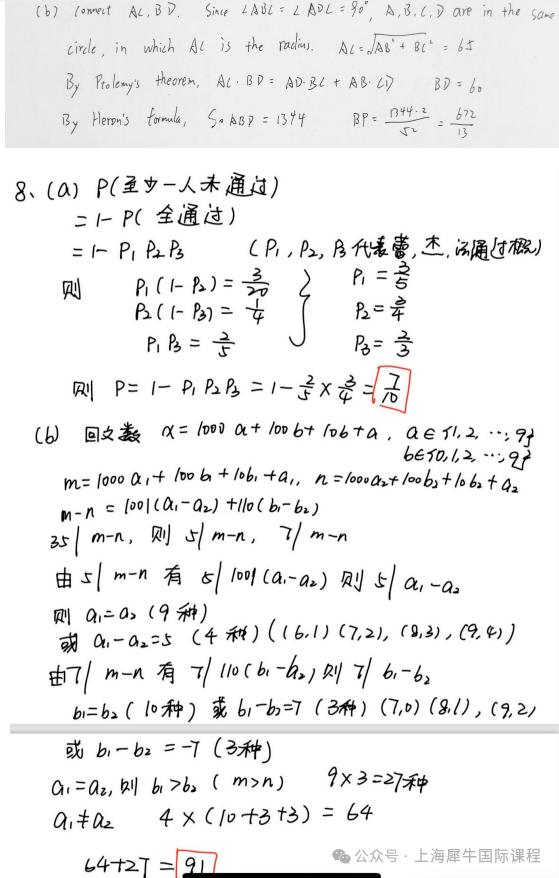 (b) Connect AC, BD. Since ∠ABC = ∠ADC = 90°, A, B, C, D are in the same
circle, in which AC is the radius. AC = √AB² + BC² = 65
By Ptolemy's theorem, AC · BD = AD · BC + AB · CD BD = 60
By Heron's formula, S△ABD = 1344 BP = 1344·2/52 = 672/13
8、(a) P(至少一人未通过)
= 1 - P( 全通过)
= 1 - P₁ P₂ P₃ (P₁, P₂, P₃ 代表雷, 杰, 通过概率)
则 P₁(1-P₂) = 3/20 P₁ = 3/5
P₂(1-P₃) = 1/4 P₂ = 3/4
P₁ P₃ = 2/5 P₃ = 2/3
则 P = 1 - P₁ P₂ P₃ = 1 - 2/5 × 3/4 = 7/10
(b) 回文数 x = 1000 a + 100 b + 10b + a, a ∈ {1, 2, ..., 9}
b ∈ {0, 1, 2, ..., 9}
m = 1000 a₁ + 100 b₁ + 10b₁ + a₁, n = 1000a₂ + 100b₂ + 10b₂ + a₂
m - n = 1001(a₁ - a₂) + 110(b₁ - b₂)
35 | m-n, 则 5 | m-n, 7 | m-n
由 5 | m-n 有 5 | 1001(a₁-a₂) 则 5 | a₁-a₂
则 a₁ = a₂ (9 种)
或 a₁ - a₂ = 5 (4 种) ((6,1) (7,2), (8,3), (9,4))
由 7 | m-n 有 7 | 110(b₁-b₂) 则 7 | b₁-b₂
b₁ = b₂ (10种) 或 b₁-b₂ = 7 (3种) (7,0) (8,1), (9,2)
或 b₁ - b₂ = -7 (3种)
a₁ = a₂, 则 b₁ > b₂ ( m>n) 9 × 3 = 27种
a₁ ≠ a₂ 4 × (10+3+3) = 64
64+27 = 91
公众号 · 上海犀牛国际课程